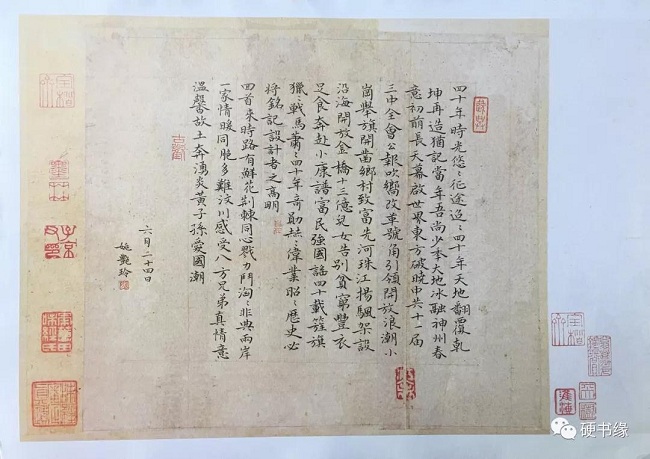 四十年時光悠々征途迢々四十年天地翻覆乾
坤再造猶記當年吾尚少季大地冰融神州春
意初萌長天幕啟世界東方破曉中共十一屆
三中全會公報吹嚮改革號角引領開放浪潮小
崗舉旗開啟鄉村致富先河珠江揚颿架設
沿海開放金橋十三億兒女告別貧窮豐衣
足食奔赴小康譜富民強國謠四十載旌旗
獵々戰馬蕭々四十年奇勛燕々偉業昭々歷史必
將銘記設計者之高明
回首來時路有鮮花荆棘同心戮力鬥淘々非典兩岸
一家情暖同胞多難汶川感受八方兄弟真情意
溫馨故土奔湧炎黃子孫愛國潮
六月二十四日
姚艷玲
硬书缘